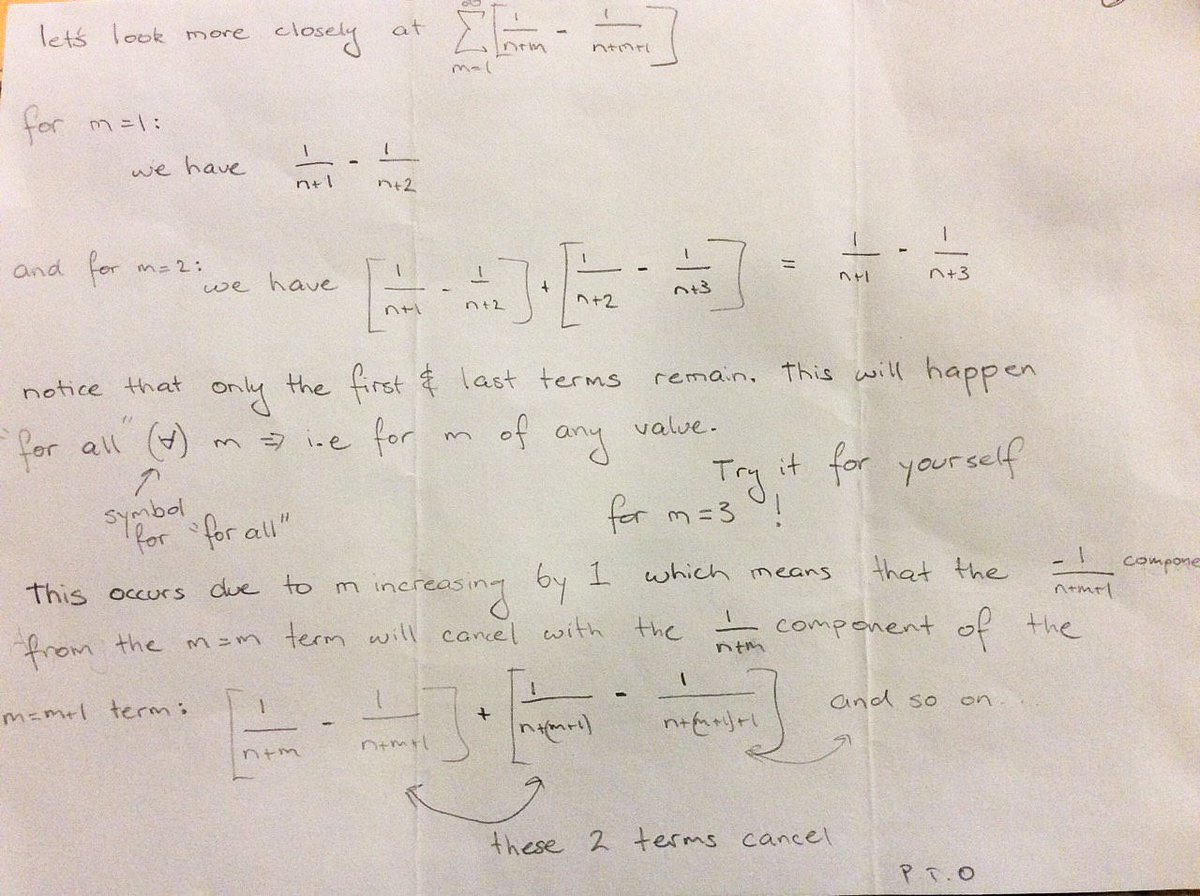 let's look more closely at ∞∑m=1 [1/n+m - 1/n+m+1]
for m=1:
we have 1/n+1 - 1/n+2
and for m=2: we have [1/n+1 - 1/n+2] + [1/n+2 - 1/n+3] = 1/n+1 - 1/n+3
notice that only the first & last terms remain. This will happen
"for all" (∀) m => i.e for m of any value.
Try it for yourself
for m=3 !
symbol
for "for all"
This occurs due to m increasing by 1 which means that the -1/n+m+1 compone
from the m=m term will cancel with the 1/n+m component of the
m=m+1 term: [1/n+m - 1/n+m+1] + [1/n+(m+1) - 1/n+(m+1)+1] and so on...
these 2 terms cancel
P.T.O